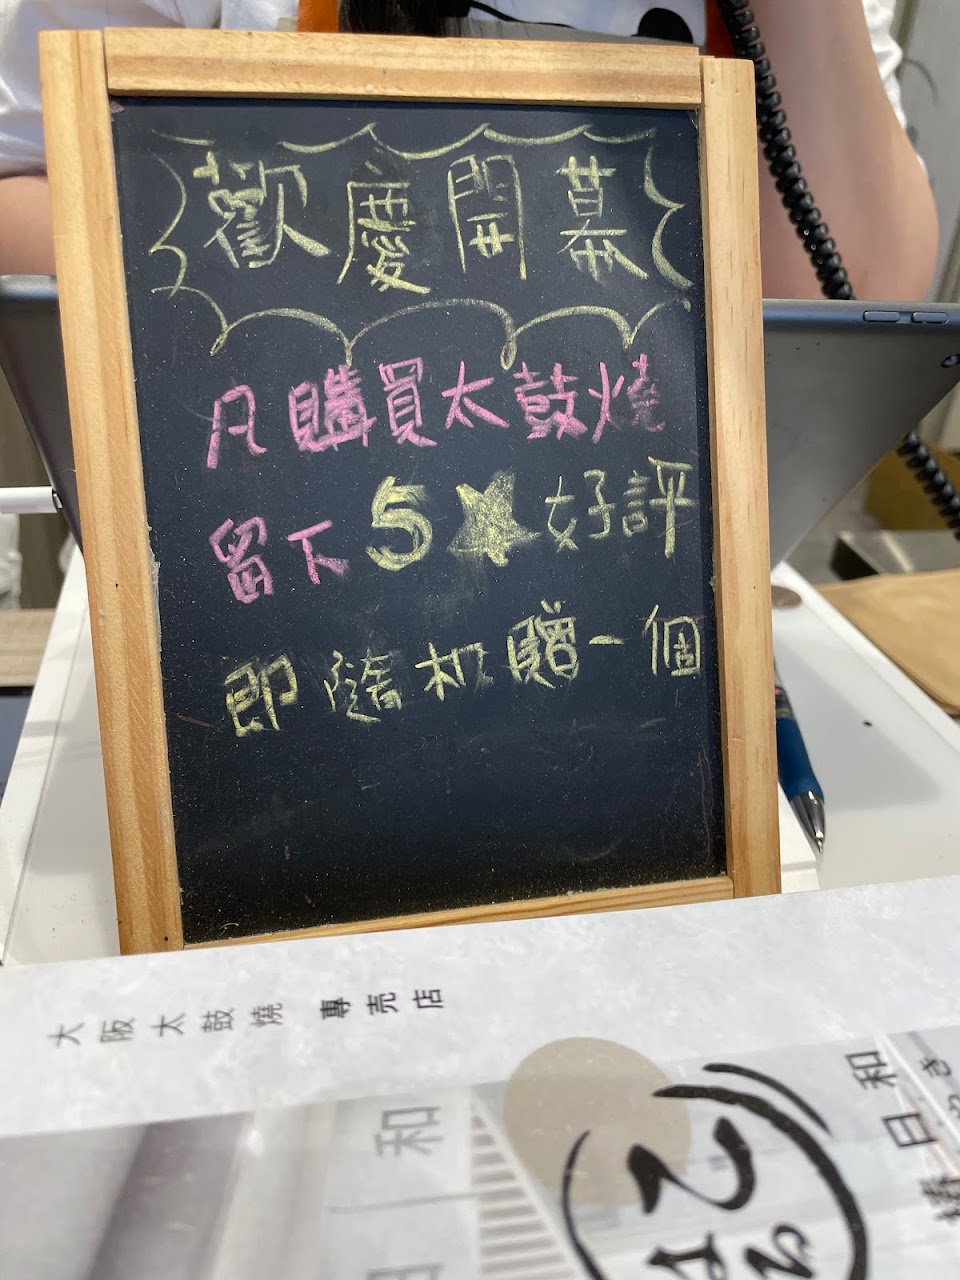 歡慶開幕
凡購買太鼓燒
留下5★好評
即隨机贈一個
大阪太鼓燒 專売店
和
日
和日
き